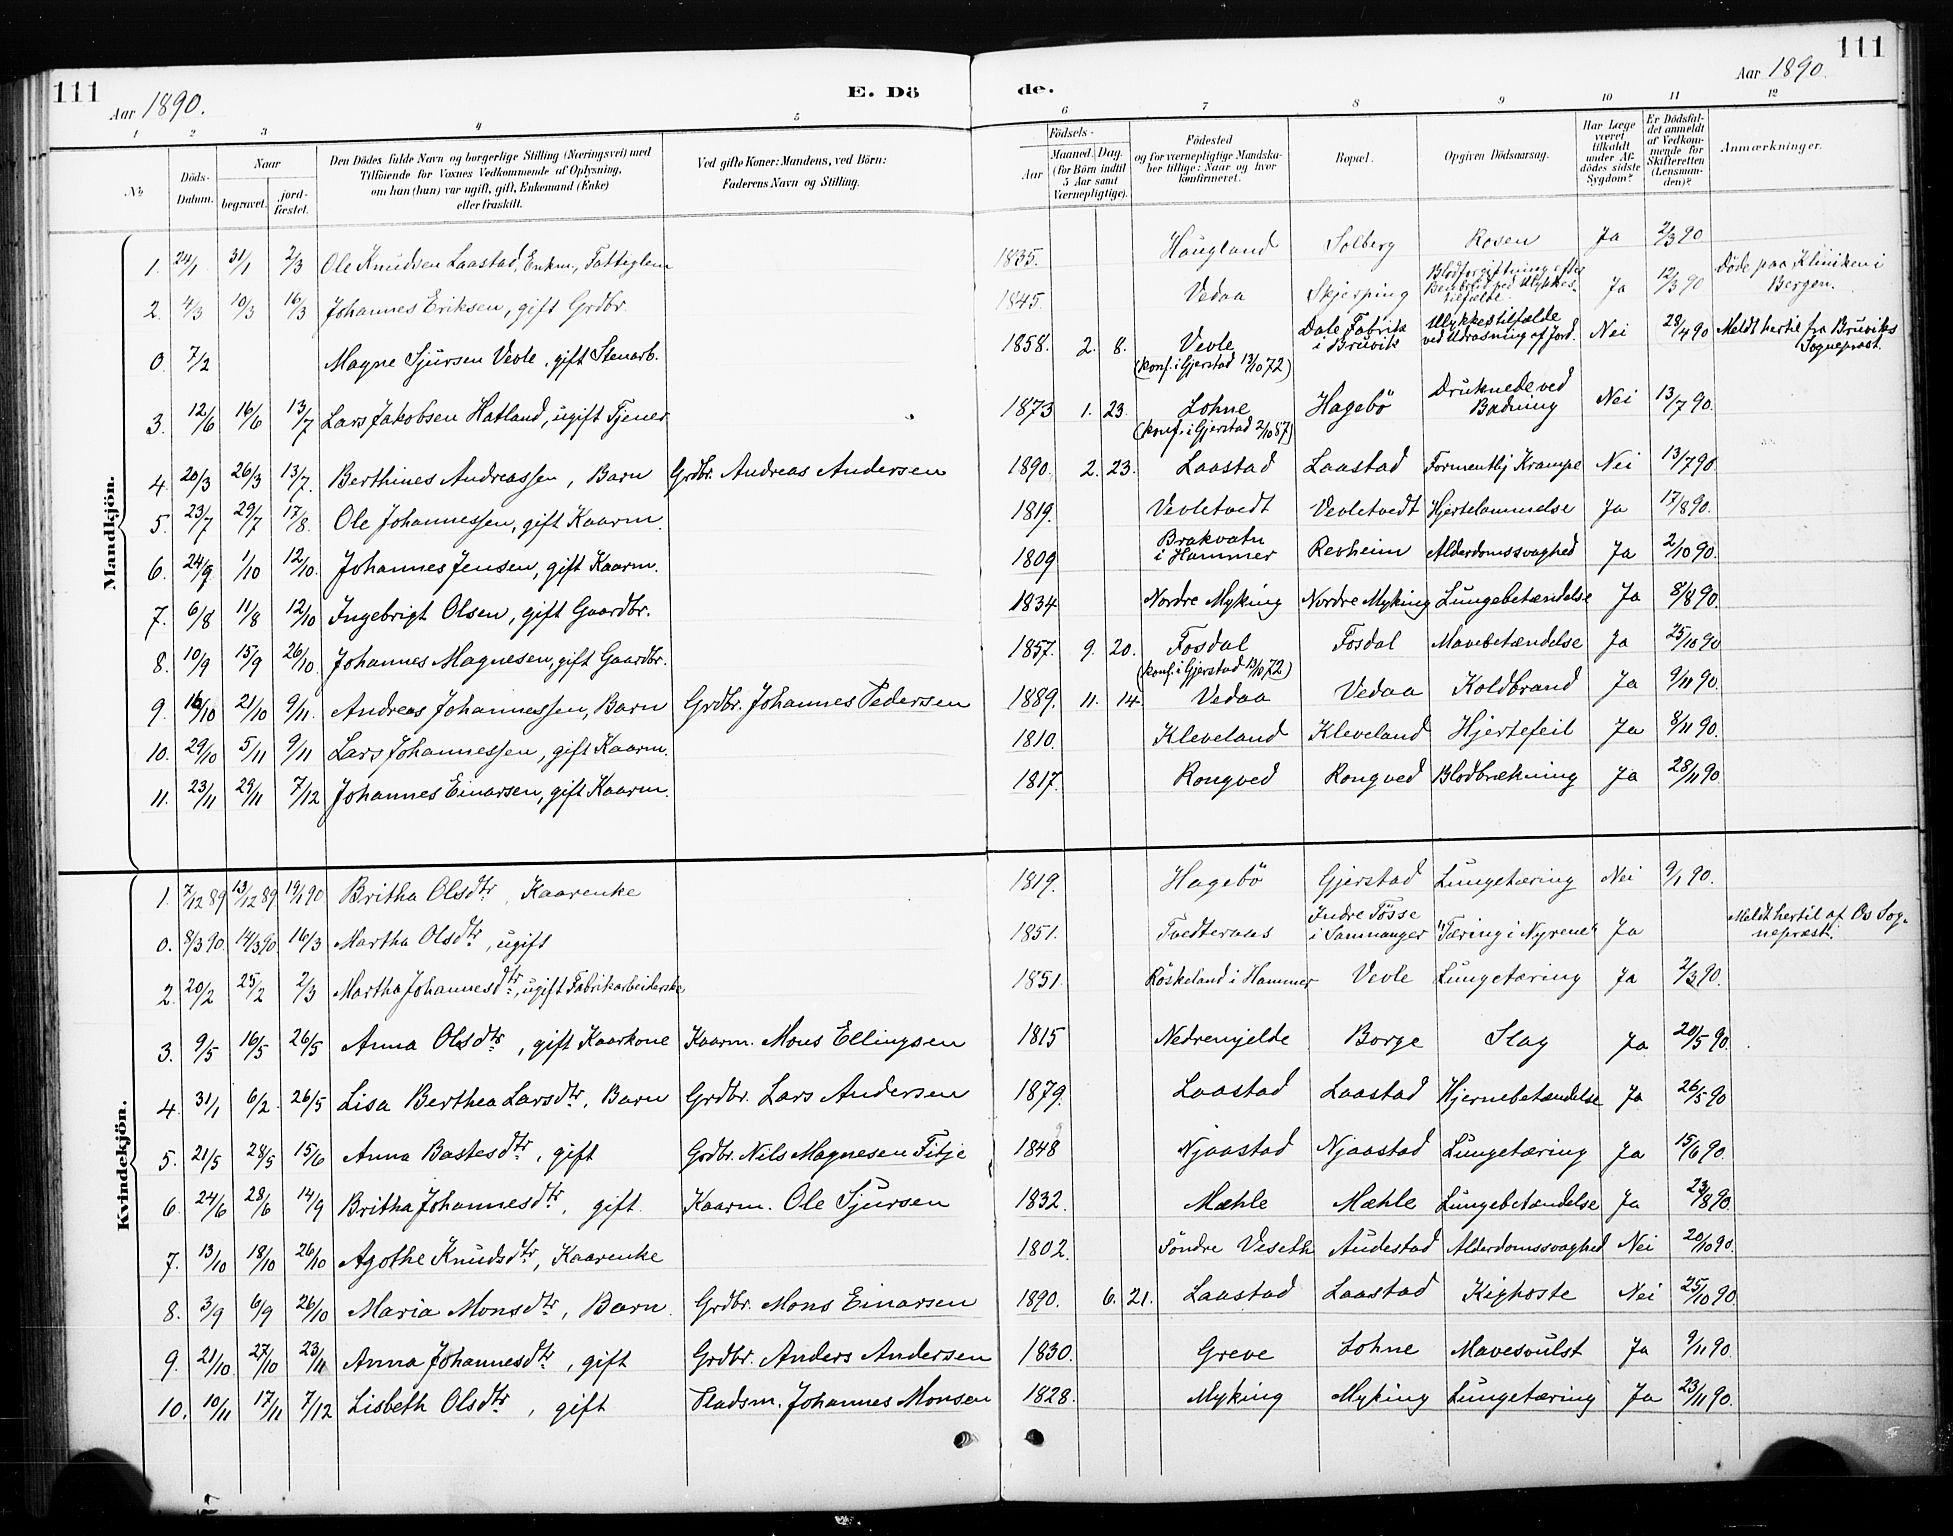 111
Aar 1890.
E. Dö
de.
Aar 1890.
111
1 2 3 4 5 6 7 8 9 10 11 12
No
Döds-Datum.
Naar
begravet. jordfæstet.
Den Dödes fulde Navn og borgerlige Stilling (Næringsvei) med
Tilföiende for Voxnes Vedkommende af Oplysning,
om han (hun) var ugift, gift, Enkemand (Enke)
eller fraskilt.
Ved gifte Koner: Mandens, ved Börn:
Faderens Navn og Stilling.
Födsels-
Aar Maaned. Dag.
(for Börn indtil
5 Aar samt
Værnepligtige).
Födested
og for værnepligtige Mandskaber tillige: Naar og hvor
konfirmeret.
Bopæl.
Opgiven Dödsaarsag.
Har Læge
været
tilkaldt
under Afdödes sidste
Sygdom?
Er Dödsfaldet anmeldt
af Vedkommende for
Skifteretten
(Lensmanden)?
Anmærkninger.
Mandkjön.
1. 24/1 31/1 2/3 Ole Knudsen Laastad, Enkm., Fattiglem 1835. Haugland Solberg Rosen Ja 2/3 90
2. 4/3 10/3 16/3 Johannes Eriksen, gift Grdbr. 1845. Vedaa Skjerping Blodforgiftning efter Benbrud ved Ulykkestilfælde. Ja 12/3 90 Döde paa Kliniken i Bergen.
0. 7/2 Magne Sjursen Vevle, gift Stenarb. 1858. 2. 8. Vevle (konf. i Gjerstad 13/10 72) Dale Fabrik i Bruvik Ulykkestilfælde ved Udrasning af Jord. Nei 28/4 90 Meldt hertil fra Bruviks Sogneprest.
3. 12/6 16/6 13/7 Lars Jakobsen Hatland, ugift Tjener 1873 1. 23. Lohne (konf. i Gjerstad 2/10 87) Hagebö Druknede ved Badning Nei 13/7 90.
4. 20/3 26/3 13/7. Berthines Andreassen, Barn Grdbr. Andreas Andersen 1890. 2. 23. Laastad Laastad Formentlj Krampe Nei 13/7 90.
5. 23/7 29/7 17/8. Ole Johannessen, gift Kaarm. 1819. Vevletvedt Vevletvedt Hjertelammelse Ja 17/8 90.
6. 24/9 1/10 12/10. Johannes Jensen, gift Kaarm. 1809 Brakvatn i Hammer Revheim Alderdomssvaghed Ja 2/10 90.
7. 6/8 11/8 12/10 Ingebrigt Olsen, gift Gaardbr. 1834 Nordre Myking Nordre Myking Lungebetændelse Ja 8/8 90.
8. 10/9 15/9 26/10. Johannes Magnesen, gift Gaardbr. 1857. 9. 20. Fosdal (konf. i Gjerstad 13/10 72) Fosdal Mavebetændelse Ja 25/10 90
9. 16/10 21/10 9/11. Andreas Johannessen, Barn Grdbr. Johannes Pedersen 1889. 11. 14. Vedaa Vedaa Koldbrand Ja 9/11 90.
10. 29/10 5/11 9/11 Lars Johannessen, gift Kaarm. 1810. Kleveland Kleveland Hjertefeil Ja 8/11 90.
11. 23/11 29/11 7/12 Johannes Einarsen, gift Kaarm. 1817. Rongved Rongved Blodbrækning Ja 28/11 90.
Kvindekjön.
1. 7/12 89 13/12 89 19/1 90 Britha Olsdtr., Kaarenke 1819. Hagebö Gjerstad Lungetæring Nei 9/1 90.
0. 8/3 90 14/3 90. 16/3 Martha Olsdtr., ugift 1851. Tvedteraas Indre Tösse i Samnanger "Tæring i Nyrene" Ja Meldt hertil af Os Sogneprest.
2. 20/2 25/2 2/3 Martha Johannesdtr., ugift Fabrikarbeiderske 1851. Röskeland i Hammer Vevle Lungetæring Ja 2/3 90.
3. 9/5 16/5 26/5 Anna Olsdtr., gift Kaarkone Kaarm. Mons Ellingsen 1815 Nedremjelde Borge Slag Ja 20/5 90.
4. 31/1 6/2. 26/5 Lisa Berthea Larsdtr., Barn Grdbr. Lars Andersen 1879. Laastad Laastad Hjernebetændelse Ja 26/5 90
5. 21/5 28/5 15/6 Anna Bastesdtr., gift Grdbr. Nils Magnesen Fitje 1848 Njaastad Njaastad Lungetæring Ja 15/6 90.
6. 24/6 28/6 14/9 Britha Johannesdtr., gift. Kaarm. Ole Sjursen 1832. Mæhle Mæhle Lungebetændelse Ja 23/8 90.
7. 13/10 18/10 26/10 Agothe Knudsdtr., Kaarenke 1802. Söndre Viseth Audestad Alderdomssvaghed Nei 20/10 90.
8. 3/9 6/9 26/10 Maria Monsdtr., Barn. Grdbr. Mons Einarsen 1890. 6. 21. Laastad Laastad Kighoste Nei 25/10 90.
9. 21/10. 27/10 23/11 Anna Johannesdtr., gift Grdbr. Anders Andersen 1830. Greve Lohne Mavesvulst Ja 9/11 90.
10. 10/11 17/11 7/12 Lisbeth Olsdtr., gift Pladsm. Johannes Monsen 1828. Myking Myking Lungetæring Ja 23/11 90.